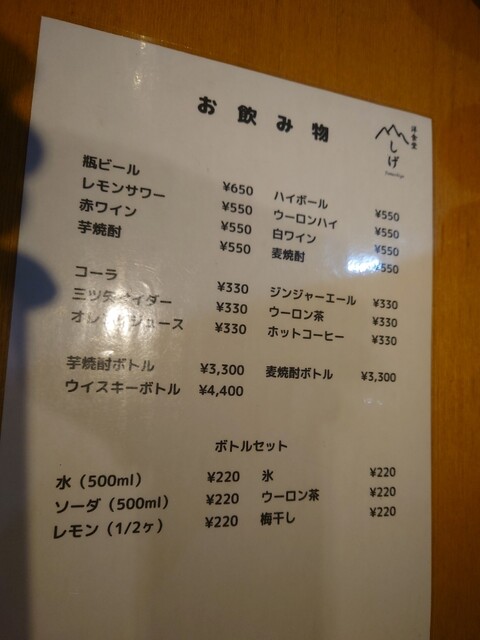 お飲み物
洋食堂
しげ
瓶ビール ¥650 ハイボール ¥550
レモンサワー ¥550 ウーロンハイ ¥550
赤ワイン ¥550 白ワイン ¥550
芋焼酎 ¥550 麦焼酎 ¥550
コーラ ¥330 ジンジャーエール ¥330
三ツ矢サイダー ¥330 ウーロン茶 ¥330
オレンジジュース ¥330 ホットコーヒー ¥330
芋焼酎ボトル ¥3,300 麦焼酎ボトル ¥3,300
ウイスキーボトル ¥4,400
ボトルセット
水（500ml） ¥220 氷 ¥220
ソーダ（500ml） ¥220 ウーロン茶 ¥220
レモン（1/2ヶ） ¥220 梅干し ¥220